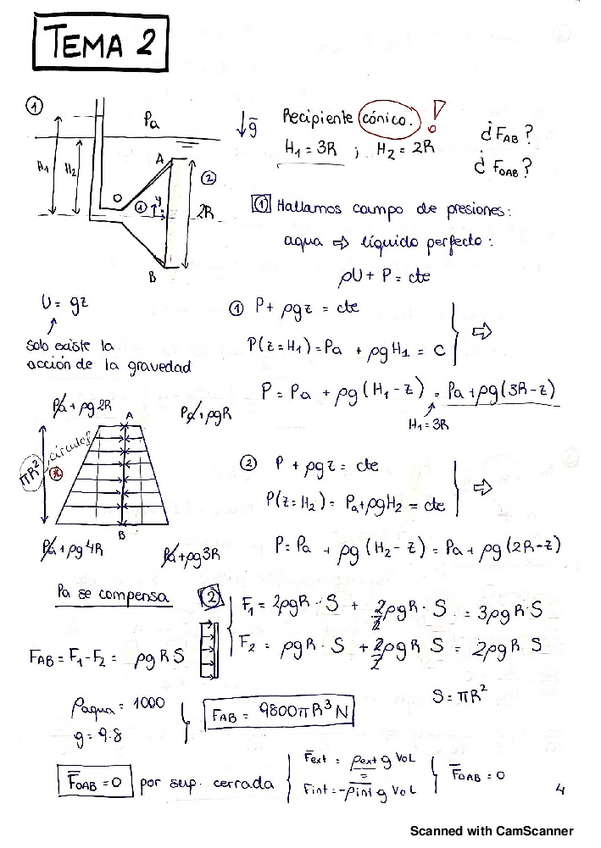 TEMA 2
① Pa ↓ḡ Recipiente cónico. ! ¿FAB?
H₁ = 3R ; H₂ = 2R ¿FOAB?
H₁ H₂ O A B ① ② 2R
① Hallamos campo de presiones:
agua ⇒ líquido perfecto:
ρU + P = cte
U = gz
solo existe la
acción de la gravedad
① P + ρgz = cte
P(z=H₁) = Pa + ρgH₁ = C ⇒
P = Pa + ρg(H₁-z) = Pa + ρg(3R-z)
H₁ = 3R
Pa + ρg2R Pa + ρgR
A
πR² círculo!
B
Pa + ρg4R Pa + ρg3R
② P + ρgz = cte
P(z=H₂) = Pa + ρgH₂ = cte ⇒
P = Pa + ρg(H₂-z) = Pa + ρg(2R-z)
Pa se compensa
② F₁ = 2ρgR·S + 2/2 ρgR·S = 3ρgR·S
F₂ = ρgR·S + 2/2 ρgR S = 2ρgR S
FAB = F₁-F₂ = ρgRS
S = πR²
ρagua = 1000
g = 9.8
FAB = 9800πR³ N
F̄OAB = 0 por sup. cerrada
F̄ext = ρext g VOL
F̄int = -ρint g VOL
F̄OAB = 0
4
Scanned with CamScanner